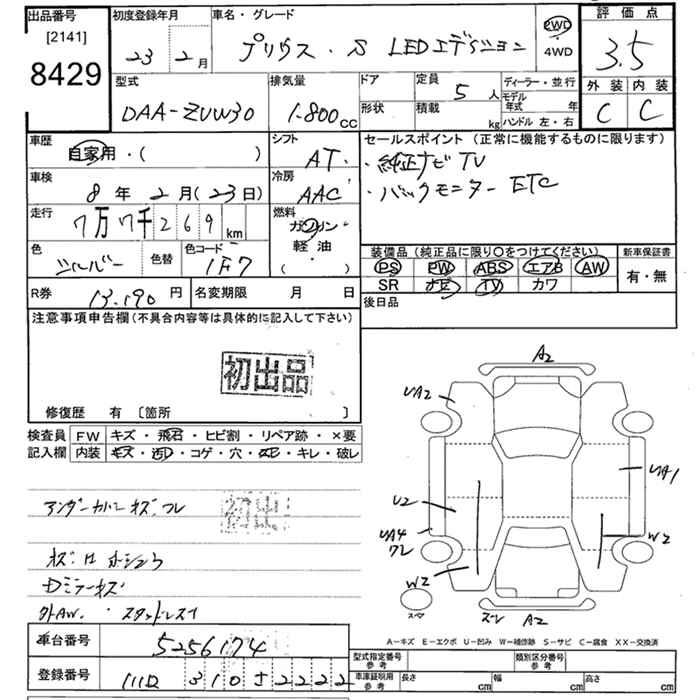 出品番号
[2141]
8429
初度登録年月
23年 2月
車名・グレード
プリウス・S LEDエディション
2WD
4WD
評価点
3.5
外装 内装
C C
型式
DAA-ZVW30
排気量
1.800cc
ドア
形状
定員
5人
積載
kg
ディーラー・並行
モデル年式 年
ハンドル 左・右
車歴
自家用・( )
車検
8年 2月(23日)
走行
7万7千269km
色
シルバー
色替
色コード
1F7
シフト
AT
冷房
AAC
燃料
ガソリン
軽油
( )
セールスポイント(正常に機能するものに限ります)
・純正ナビTV
・バックモニター ETC
装備品(純正品に限り○をつけてください)
PS PW ABS エアB AW
SR ナビ TV カワ
新車保証書
有・無
R券
13.190円
名変期限 月 日
後日品
注意事項申告欄(不具合内容等は具体的に記入して下さい)
初出品
修復歴 有 〔箇所 〕
検査員記入欄
FW キズ・飛石・ヒビ割・リペア跡・×要
内装 キズ・汚レ・コゲ・穴・・キレ・破レ
アンダーカバーキズ.ワレ
初出
Dミラーキズ
外AW. スタッドレス
A2
UA2
UA1
U2
UA4
ワレ
W2
W2
A2
スペア
A-キズ E-エクボ U-凹み W-補修跡 S-サビ C-腐食 XX-交換済
車台番号
5256174
登録番号
310 2222
型式指定番号
参考
類別区分番号
参考
車庫証明用
参考
長さ cm
幅 cm
高さ cm